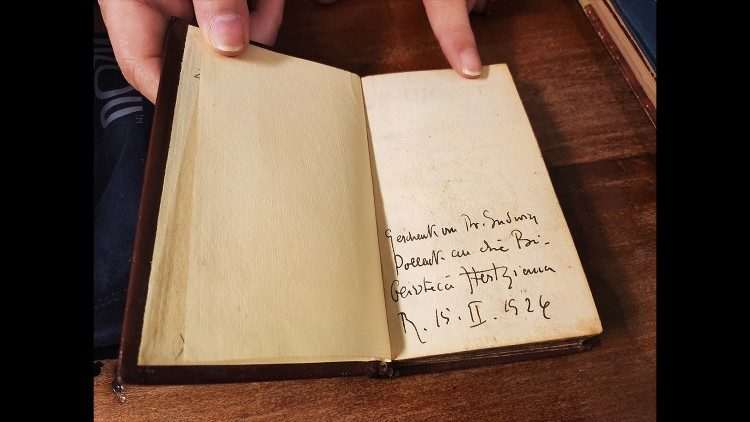 Geschenk von Dr. Ludwig
Pollak an die Bi-
blioteca Hertziana
R. 15. II. 1926